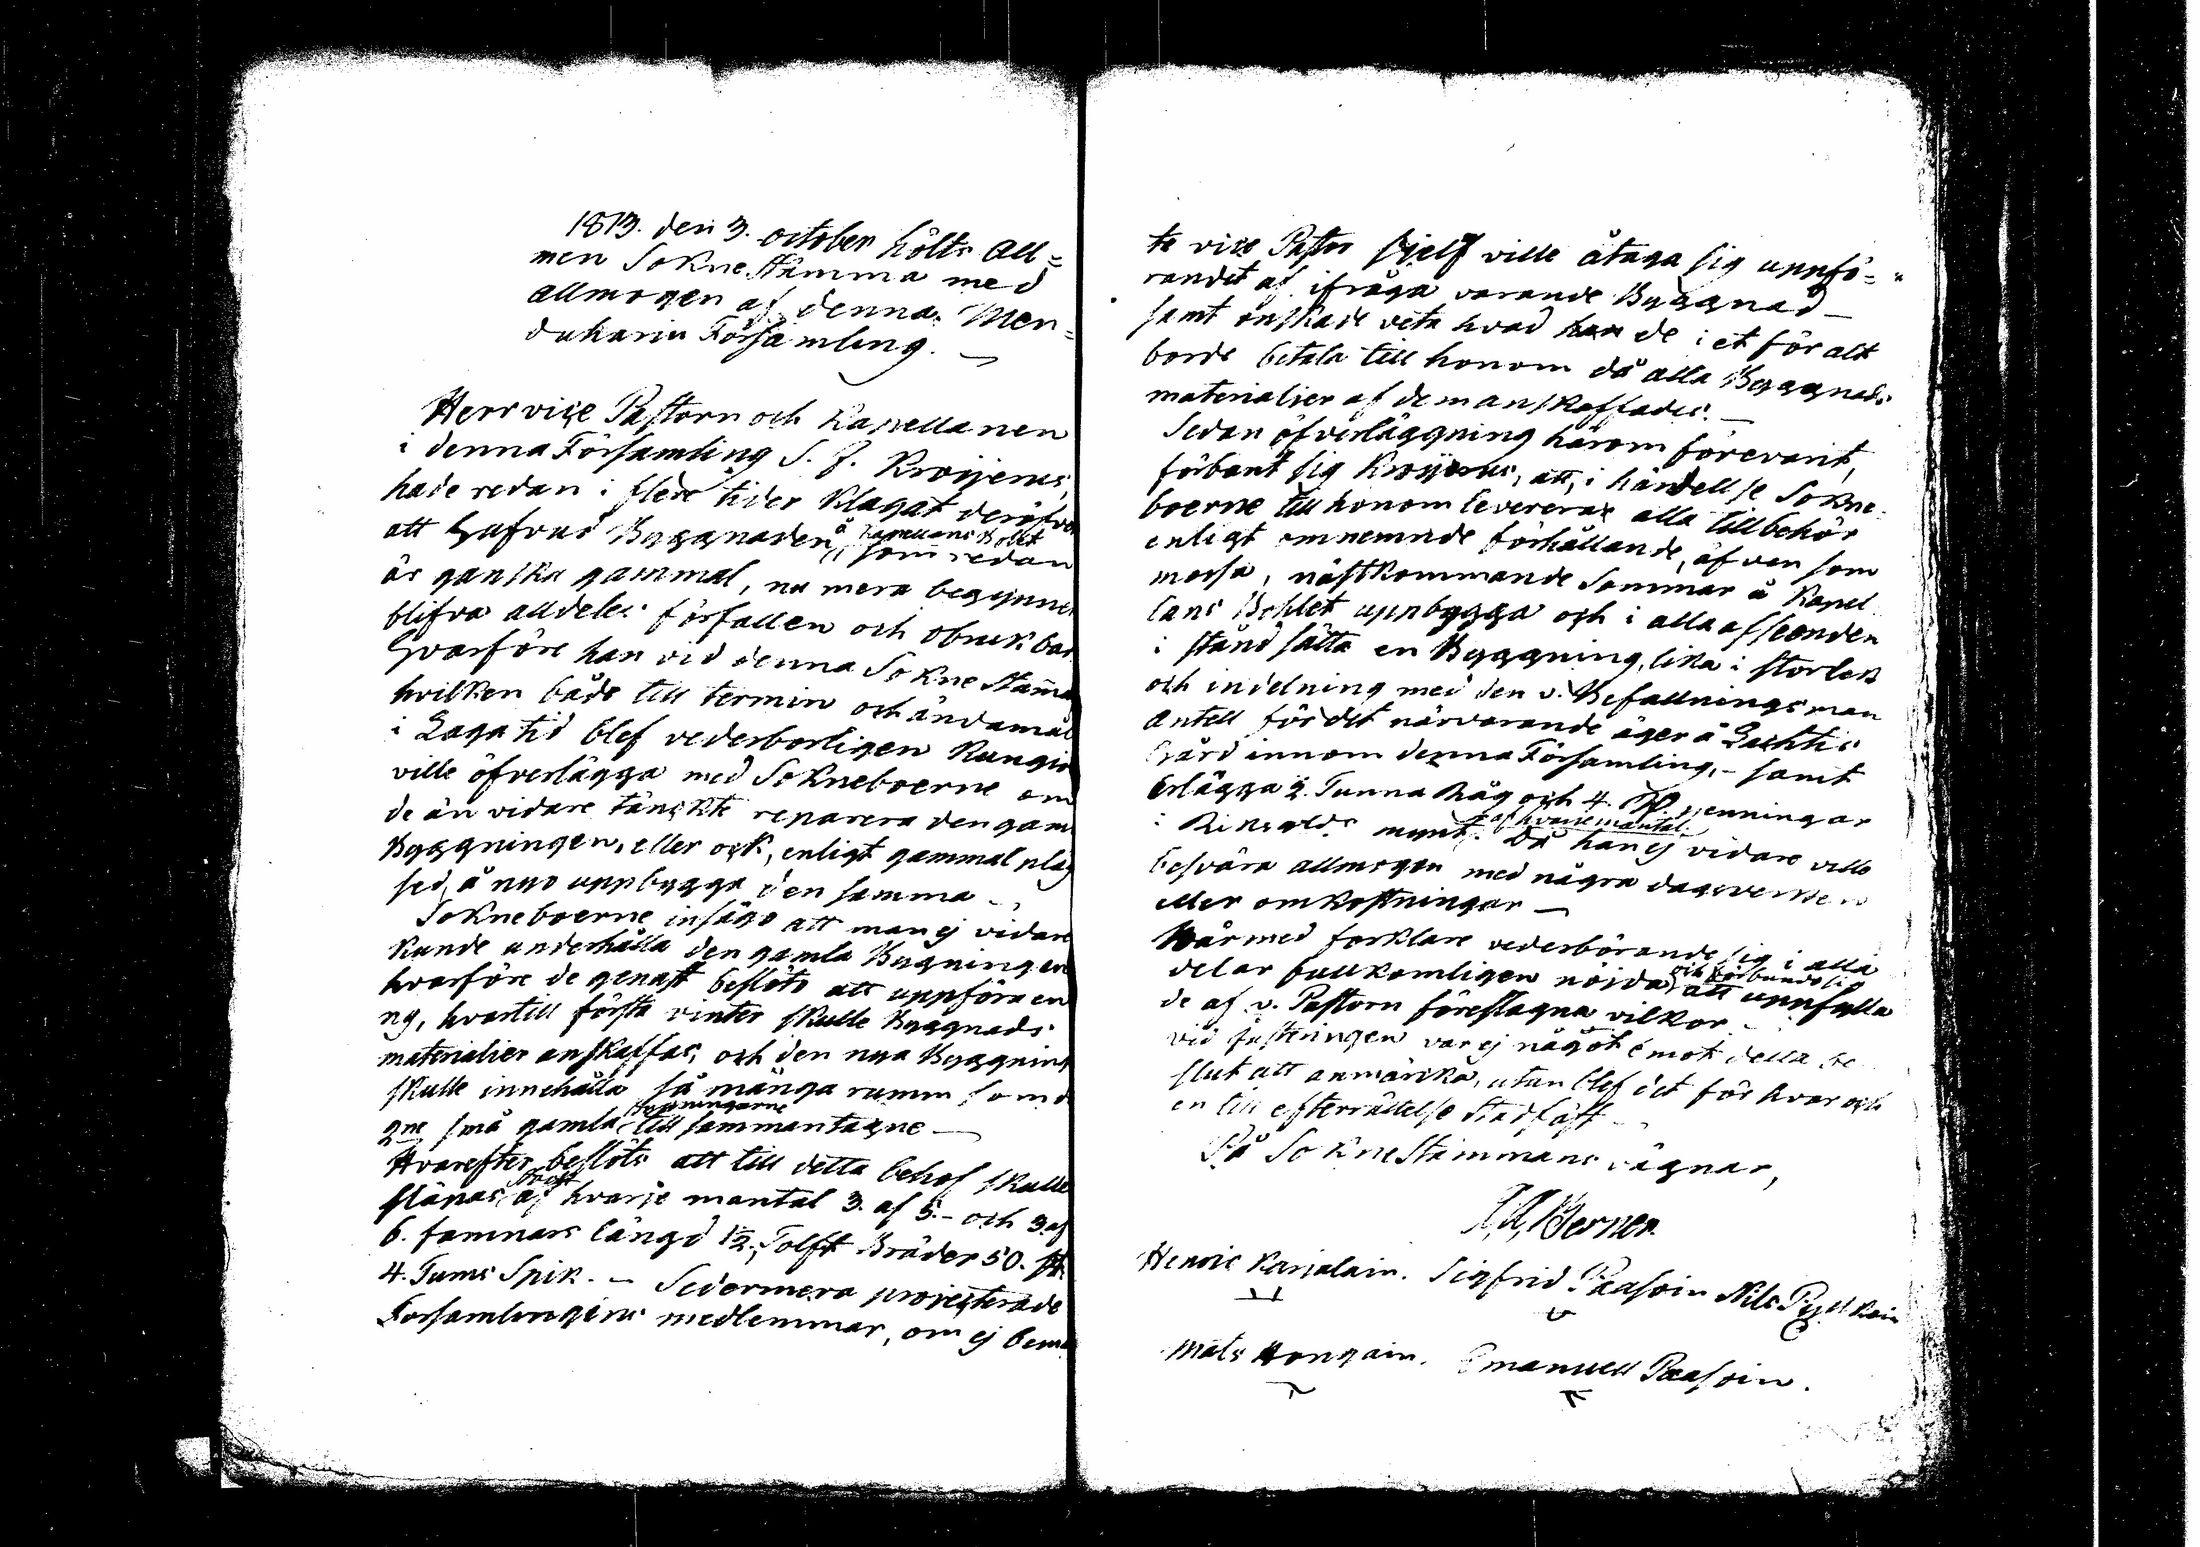 1813. den 3. october hölts all=
men Sokne Stämma med
allmogen af denna Men=
duharju Församling. —
Herr vice Pastorn och Kapellanen
i denna Församling S. J. Kroijerus,
hade redan i flere tider klagat deröfver
att Hufvud Byggnaden å Kapellans Bolet som redan
är ganska gammal, nu mera begynner
blifva alldeles förfallen och obrukbar
Hvarföre han vid denna Sokne Stäma
hvilken både till termin och ändamål
i Laga tid blef vederborligen kungjo
ville öfverlägga med Sokneboerne om
de än vidare tänckte reparera den gam
Byggningen, eller ock, enligt gammal plag
sed, å nyo uppbygga den samma —
Sokneboerne insågo att man ej vidare
kunde underhålla den gamla Bygningen
hvarföre de genast beslöto att uppföra en
ny, hvartill första vinter skulle Byggnads
materialier anskaffas, och den nya Byggning
skulle innehålla så många rumm som d
gne små gamla till sammantagne —
Hvarefter beslöts att till detta behof skulle
stänas af hvarje mantal 3. af 5. – och 3. af
6. famnars längd 1/2 Tolft Bräder 50. st.
4. Tums Spik. — Sedermera projecterade
Församlingens medlemmar, om ej bema
te vice Pastor sjelf ville åtaga sig uppfö=
randet af ifråga varande Byggnad —
samt önskade veta hvad de i et för alt
borde betala till honom då alla Byggnads
materialier af dem anskaffades. —
Sedan öfverläggning härom förevarit,
förbant sig Kroijerus, att, i händelse Sokne
boerne till honom leverera alla tillbehör
enligt omnemnde förhållande, äfven som
mossa, nästkommande Sommar å Kapel
lans Bohlet uppbygga och i alla afseenden
i stånd sätta en Byggning, lika i storlek
och indelning med den v. Befallningsman
Antell för det närvarande äger å Lachtis
Gård innom denna Församling, – samt
Erlägga 2. Tunna Råg och 4. penningar
i Riksgelds mynt. af hvarje mantal. Då han ej vidare ville
besvära allmogen med några dagsverken
eller omkostningar —
Härmed forklare vederbörande sig i alla
delar fullkomligen nöjda, och förbundo sig att uppfylla
de af v. Pastorn föreslagna vilkor. —
vid justeringen var ej något emot detta be
slut att anmärka, utan blef det för hvar och
en till efterrättelse Stadfäst —
På Sokne Stämmans vägnar,
Henric Karjalain. Sigfrid Paasoin Nils Pyykköin
Mats Hongain. Emanuell Paasoin.